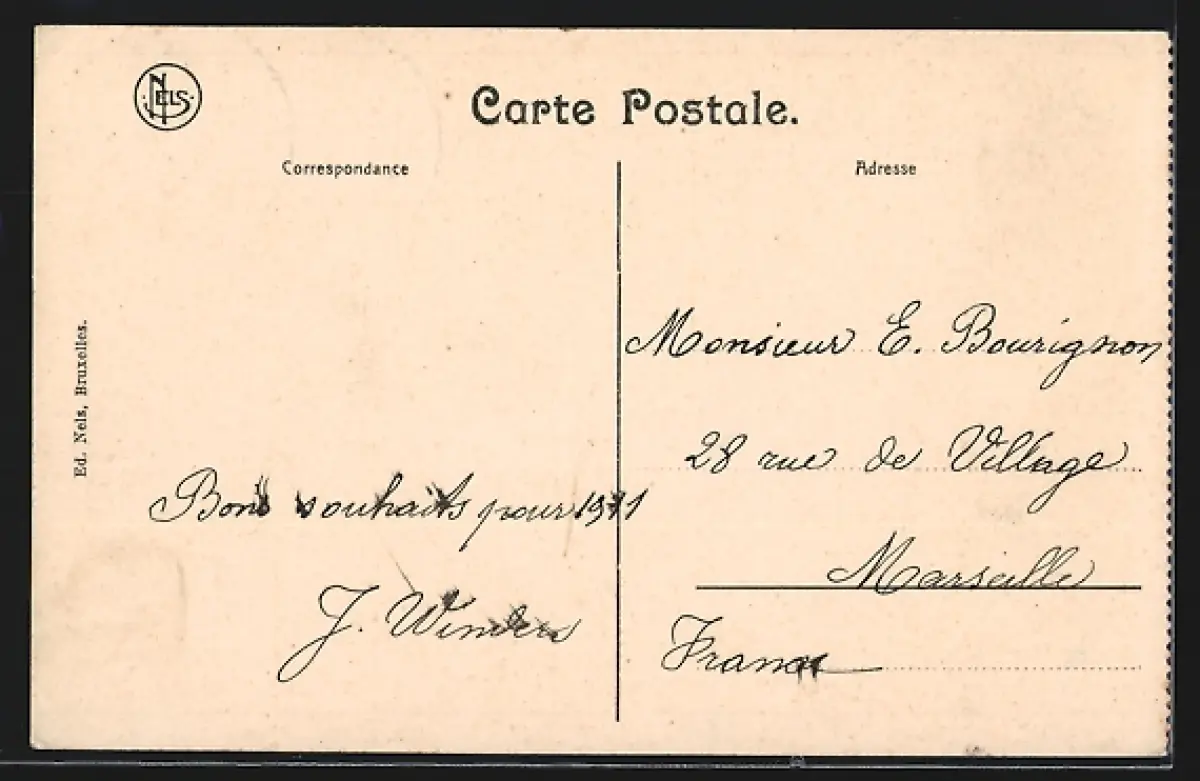 NELS
Carte Postale.
Correspondance
Adresse
Ed. Nels, Bruxelles.
Bons souhaits pour 1911
J.
Monsieur E. Bourignon
28 rue de Village
Marseille
France